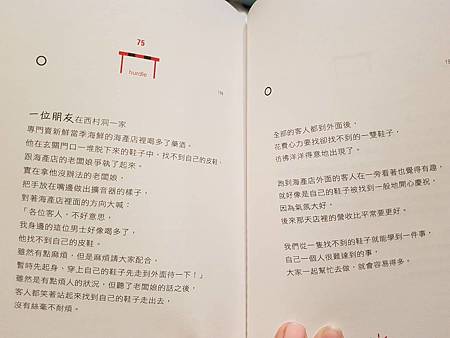 75
hurdle
一位朋友在西村洞一家
專門賣新鮮當季海鮮的海產店裡喝多了藥酒。
他在玄關門口一堆脫下來的鞋子中，找不到自己的皮鞋，
跟海產店的老闆娘爭執了起來。
實在拿他沒辦法的老闆娘，
把手放在嘴邊做出擴音器的樣子，
對著海產店裡面的方向大喊：
「各位客人，不好意思，
我身邊的這位男士好像喝多了，
他找不到自己的皮鞋。
雖然有點麻煩，但是麻煩請大家配合，
暫時先起身、穿上自己的鞋子先走到外面待一下！」
雖然是有點煩人的狀況，但聽了老闆娘的話之後，
客人都笑著站起來找到自己的鞋子走出去，
沒有絲毫不耐煩。
全部的客人都到外面後，
花費心力要找卻找不到的一雙鞋子，
彷彿洋洋得意地出現了。
跑到海產店外面的客人在一旁看著也覺得有趣，
就好像是自己的鞋子被找到一般地開心慶祝，
因為氣氛大好，
後來那天店裡的營收比平常要更好。
我們從一隻找不到的鞋子就能學到一件事，
自己一個人很難達到的事，
大家一起幫忙去做，就會容易得多。